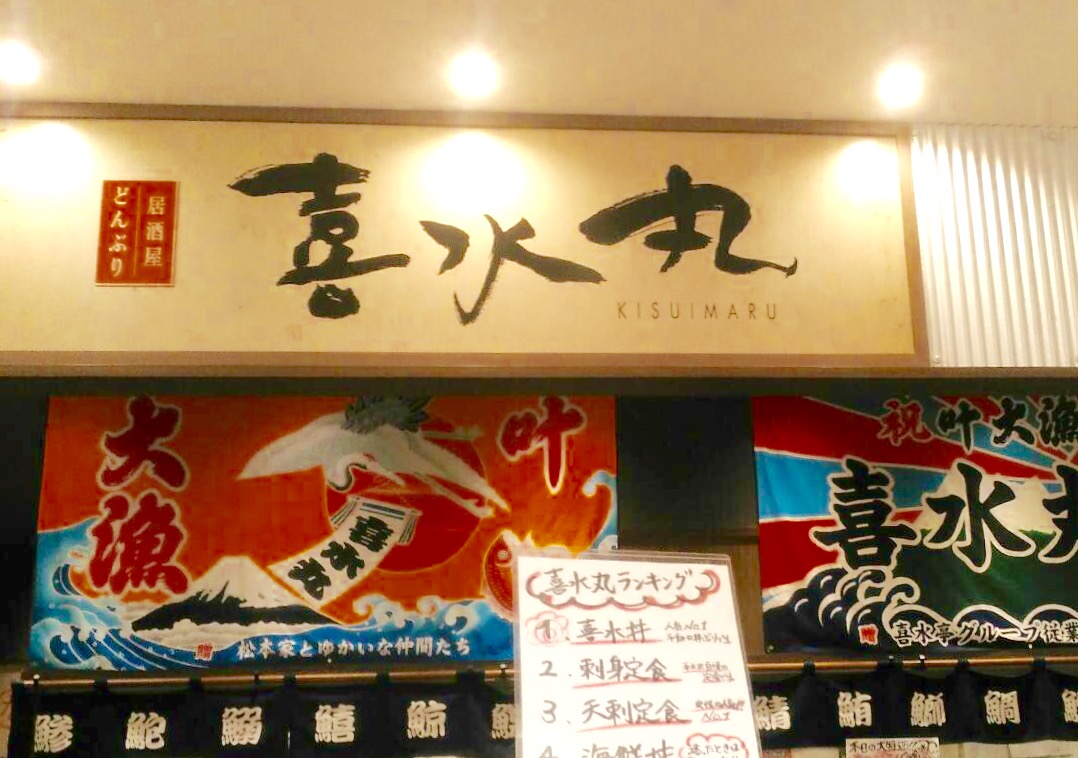 居酒屋
どんぶり
喜水丸
KISUIMARU
大漁
叶
喜水丸
贈 松本家とゆかいな仲間たち
祝 叶 大漁
喜水丸
贈 喜水亭グループ従業
喜水丸ランキング
1. 喜水丼 人気No.1
2. 刺身定食
3. 天刺定食 No.1
4. 海鮮丼
鯵 鮀 鰯 鱚 鯨
鯖 鮪 鰤 鯛